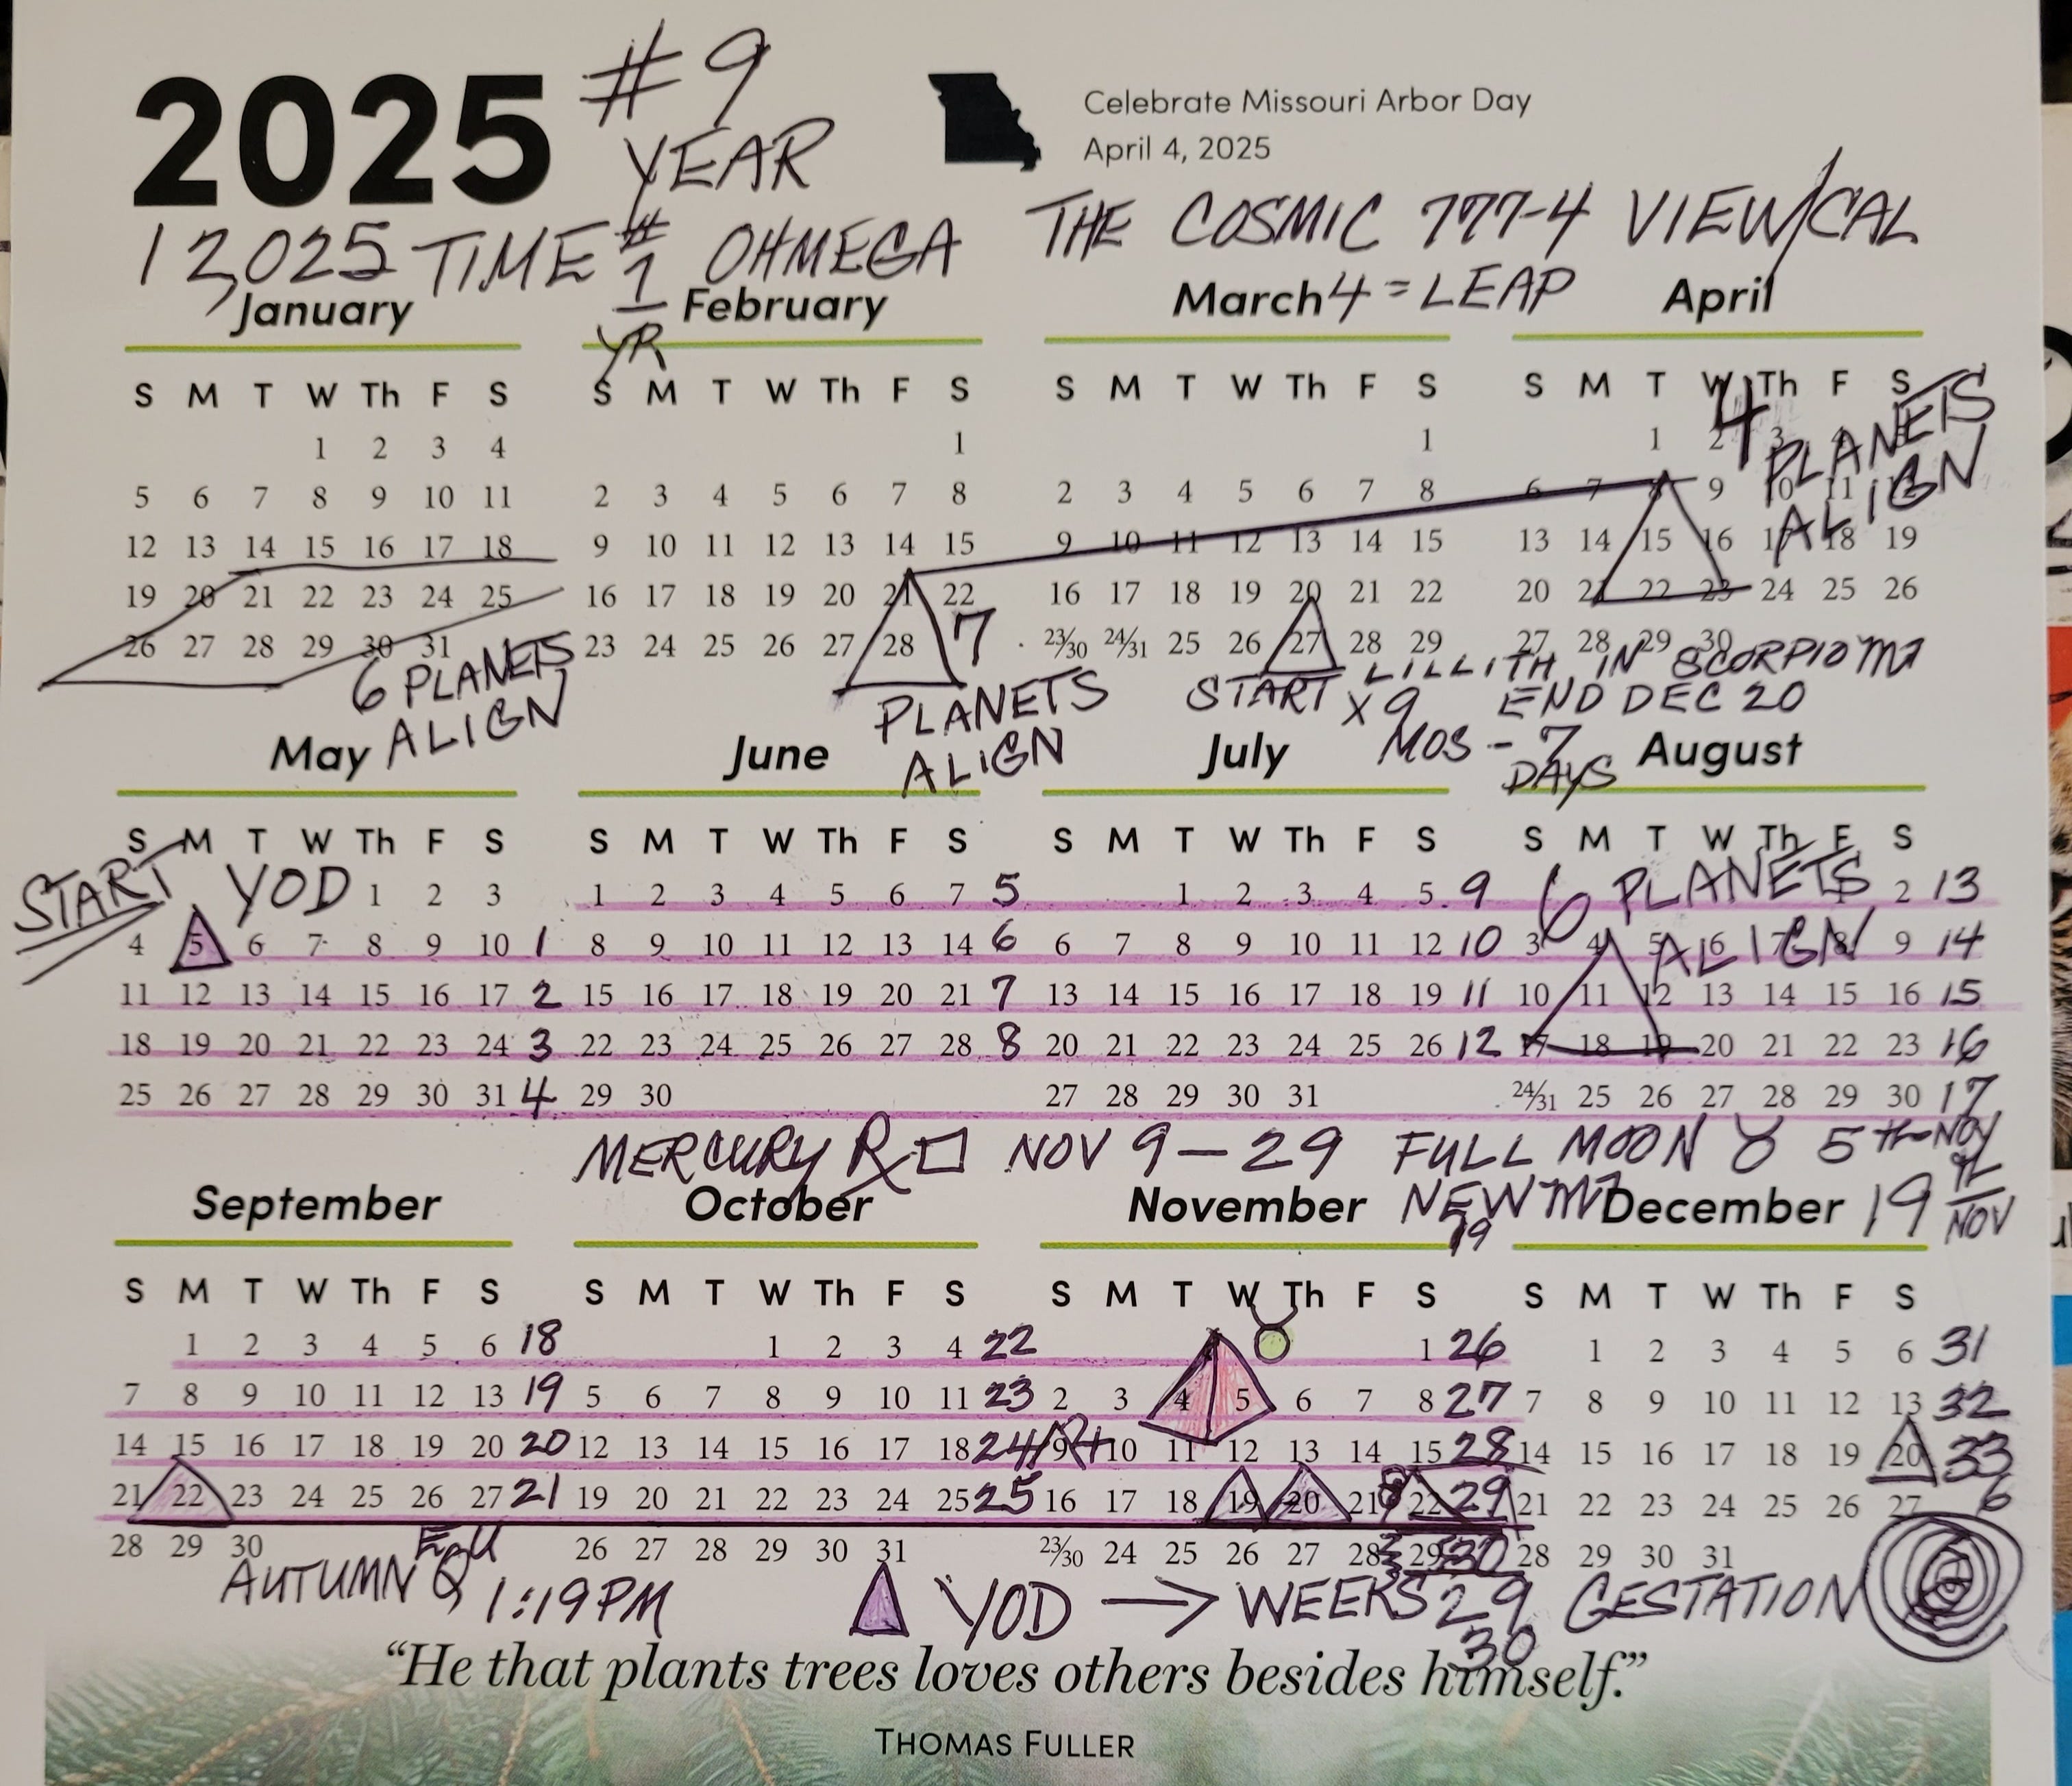 2025 #9 YEAR
Celebrate Missouri Arbor Day
April 4, 2025
12,025 TIME #1 YR OHMEGA THE COSMIC 777-4 VIEW/CAL
4 = LEAP
January February March April
S M T W Th F S S M T W Th F S S M T W Th F S S M T W Th F S
1 2 3 4 1 1 1 2 3
5 6 7 8 9 10 11 2 3 4 5 6 7 8 2 3 4 5 6 7 8 6 7 8 9 10 11
12 13 14 15 16 17 18 9 10 11 12 13 14 15 9 10 11 12 13 14 15 13 14 15 16 17 18 19
19 20 21 22 23 24 25 16 17 18 19 20 21 22 16 17 18 19 20 21 22 20 21 22 23 24 25 26
26 27 28 29 30 31 23 24 25 26 27 28 23/30 24/31 25 26 27 28 29 27 28 29 30
4 PLANETS ALIGN
6 PLANETS ALIGN
7 PLANETS ALIGN
START X 9 MOS - 7 DAYS
LILLITH IN SCORPIO ♏
END DEC 20
May June July August
S M T W Th F S S M T W Th F S S M T W Th F S S M T W Th F S
START YOD
6 PLANETS ALIGN
1 2 3 1 2 3 4 5 6 7 5 1 2 3 4 5 9 2 13
4 5 6 7 8 9 10 1 8 9 10 11 12 13 14 6 6 7 8 9 10 11 12 10 3 4 5 6 7 8 9 14
11 12 13 14 15 16 17 2 15 16 17 18 19 20 21 7 13 14 15 16 17 18 19 11 10 11 12 13 14 15 16 15
18 19 20 21 22 23 24 3 22 23 24 25 26 27 28 8 20 21 22 23 24 25 26 12 17 18 19 20 21 22 23 16
25 26 27 28 29 30 31 4 29 30 27 28 29 30 31 24/31 25 26 27 28 29 30 17
MERCURY R□ NOV 9 — 29 FULL MOON ♉ 5TH NOV
NEW ♏ 19
19 NOV
September October November December
S M T W Th F S S M T W Th F S S M T W Th F S S M T W Th F S
1 2 3 4 5 6 18 1 2 3 4 22 ♉ 1 26 1 2 3 4 5 6 31
7 8 9 10 11 12 13 19 5 6 7 8 9 10 11 23 2 3 4 5 6 7 8 27 7 8 9 10 11 12 13 32
14 15 16 17 18 19 20 20 12 13 14 15 16 17 18 24 9 10 11 12 13 14 15 28 14 15 16 17 18 19 20 33
21 22 23 24 25 26 27 21 19 20 21 22 23 24 25 25 16 17 18 19 20 21 22 29 21 22 23 24 25 26 27 6
28 29 30 26 27 28 29 30 31 23/30 24 25 26 27 28 29 30 28 29 30 31
AUTUMN EQU 1:19 PM
YOD → WEEKS 29 30 GESTATION
“He that plants trees loves others besides himself.”
THOMAS FULLER